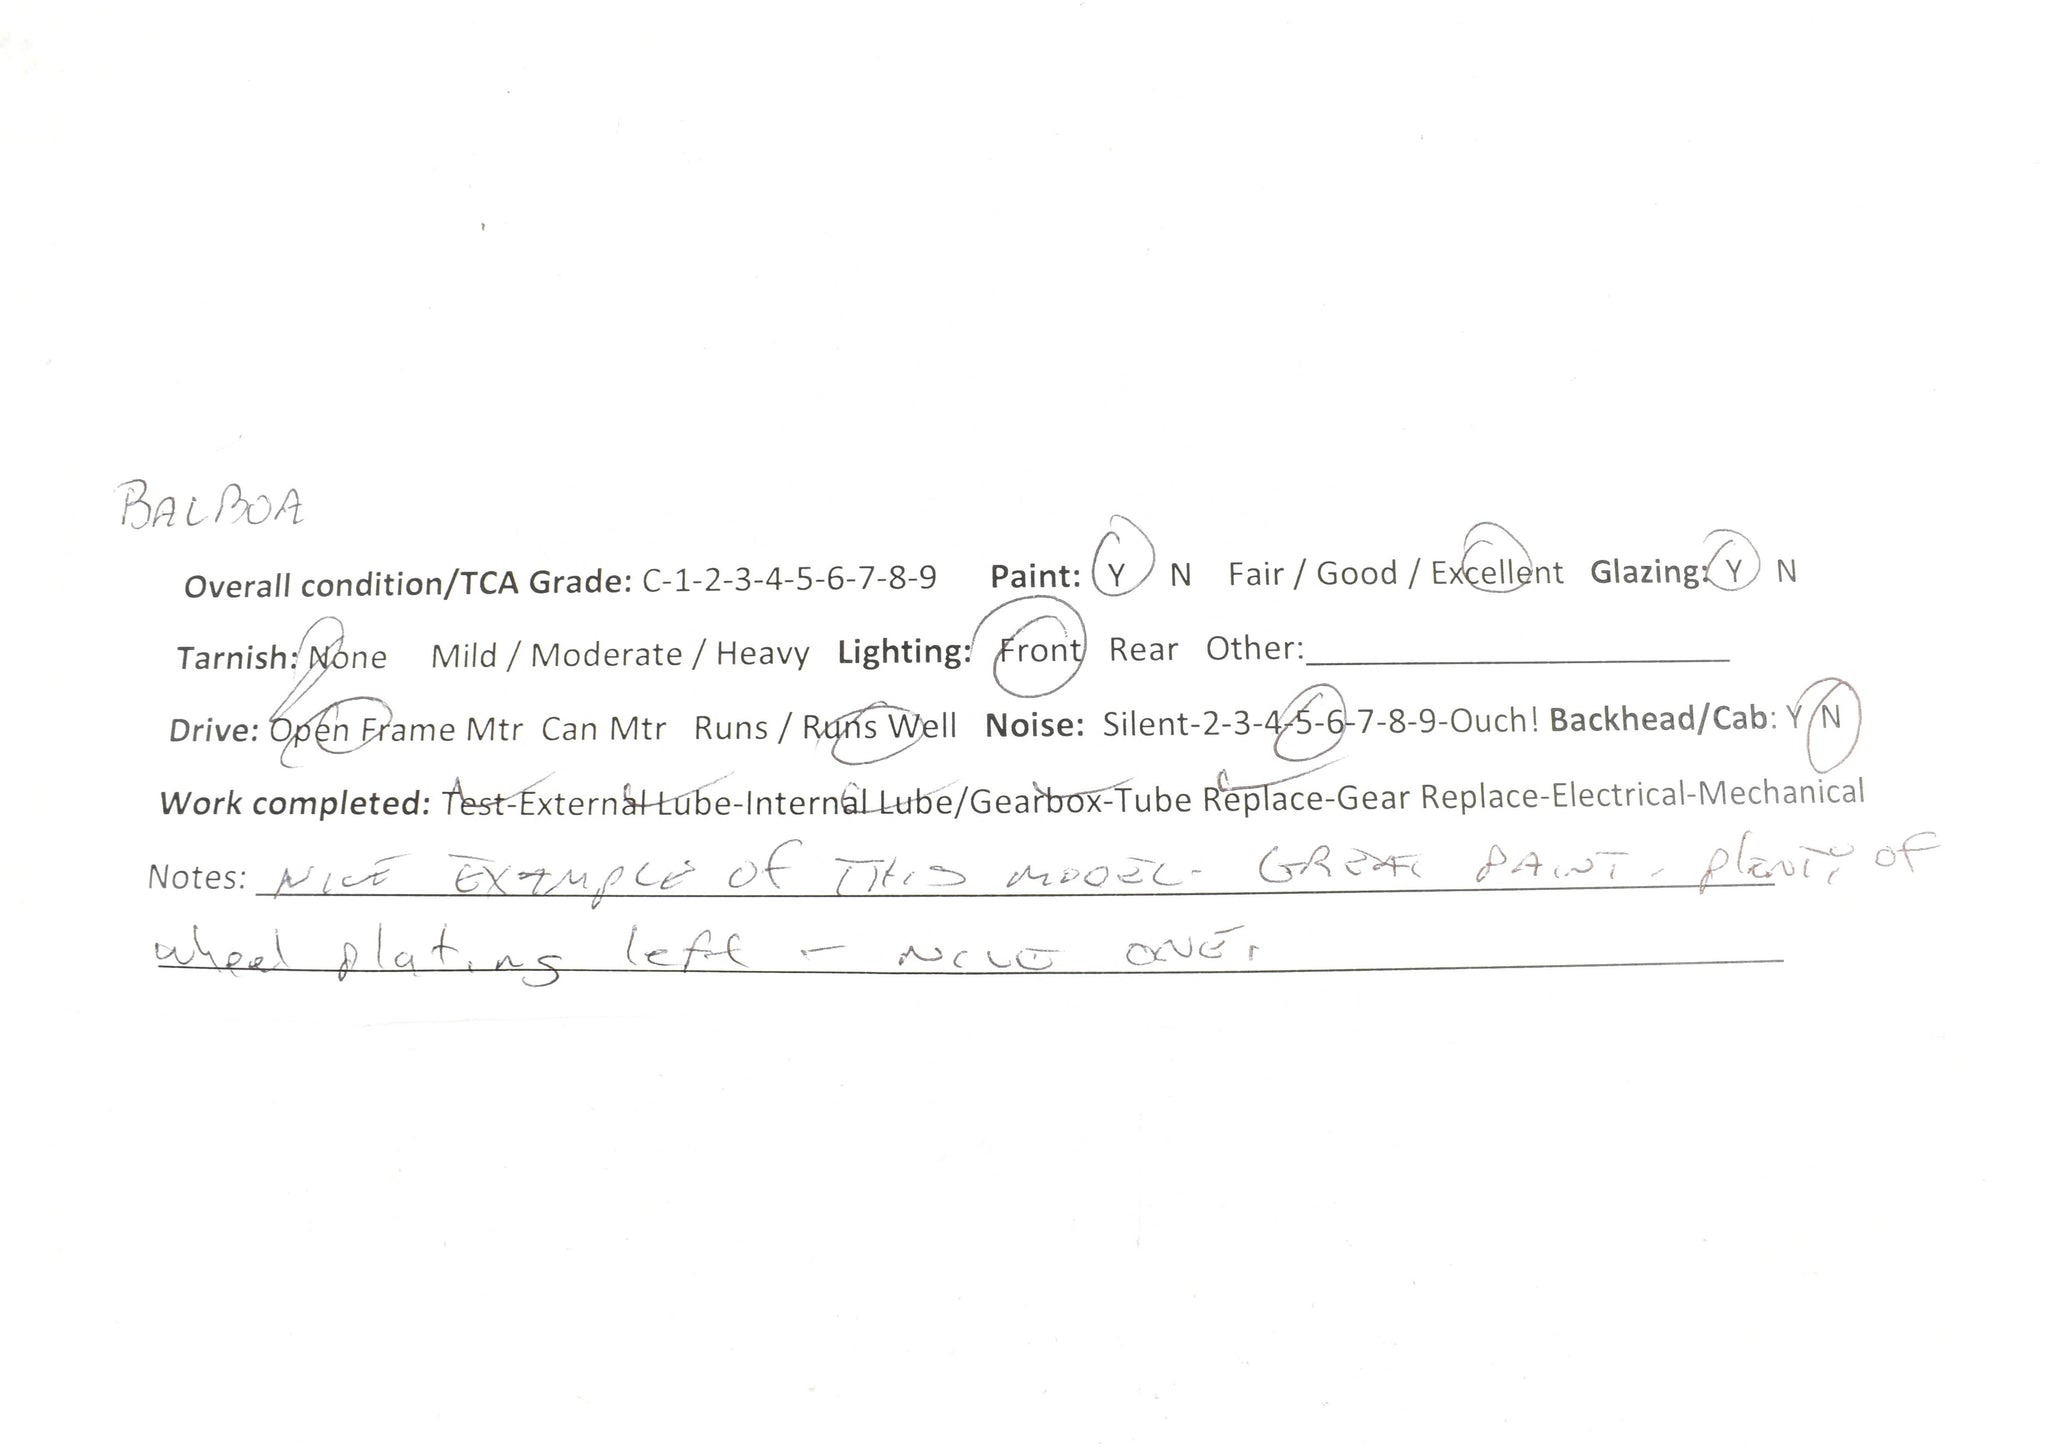 BALBOA
Overall condition/TCA Grade: C-1-2-3-4-5-6-7-8-9 Paint: Y N Fair / Good / Excellent Glazing: Y N
Tarnish: None Mild / Moderate / Heavy Lighting: Front Rear Other:
Drive: Open Frame Mtr Can Mtr Runs / Runs Well Noise: Silent-2-3-4-5-6-7-8-9-Ouch! Backhead/Cab: Y N
Work completed: Test-External Lube-Internal Lube/Gearbox-Tube Replace-Gear Replace-Electrical-Mechanical
Notes: NICE EXAMPLE of THIS MODEL- GREAT PAINT, plenty of
wheel plating left - NICE ONE.